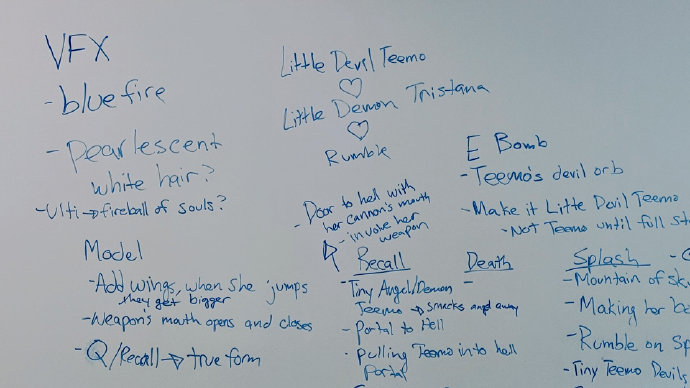 VFX
- blue fire
- Pearlescent
white hair?
- Ulti → fireball of souls?
Model
- Add wings, when she jumps
they get bigger
- Weapon's mouth opens and closes
- Q/Recall → true form
Little Devil Teemo
♡
Little Demon Tristana
♡
Rumble
- Door to hell with
her cannon's mouth
- invoke her
weapon
Recall
- Tiny Angel/Demon
Teemo → smacks away
- Portal to Hell
- Pulling Teemo into hell
Portal
Death
-
E Bomb
- Teemo's devil orb
- Make it Little Devil Teemo
- Not Teemo until full st
Splash
- Mountain of sk
- Making her b
- Rumble on Sp
- Tiny Teemo Devils